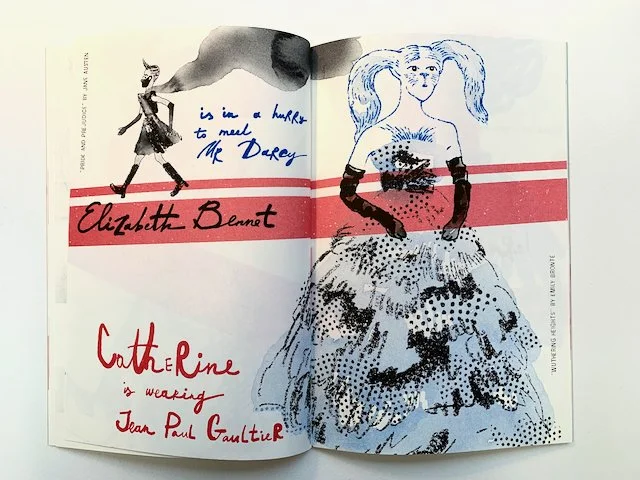 "PRIDE AND PREJUDICE" BY JANE AUSTEN
is in a hurry
to meet
Mr Darcy
Elizabeth Bennet
Catherine
is wearing
Jean Paul Gaultier
"WUTHERING HEIGHTS" BY EMILY BRONTE